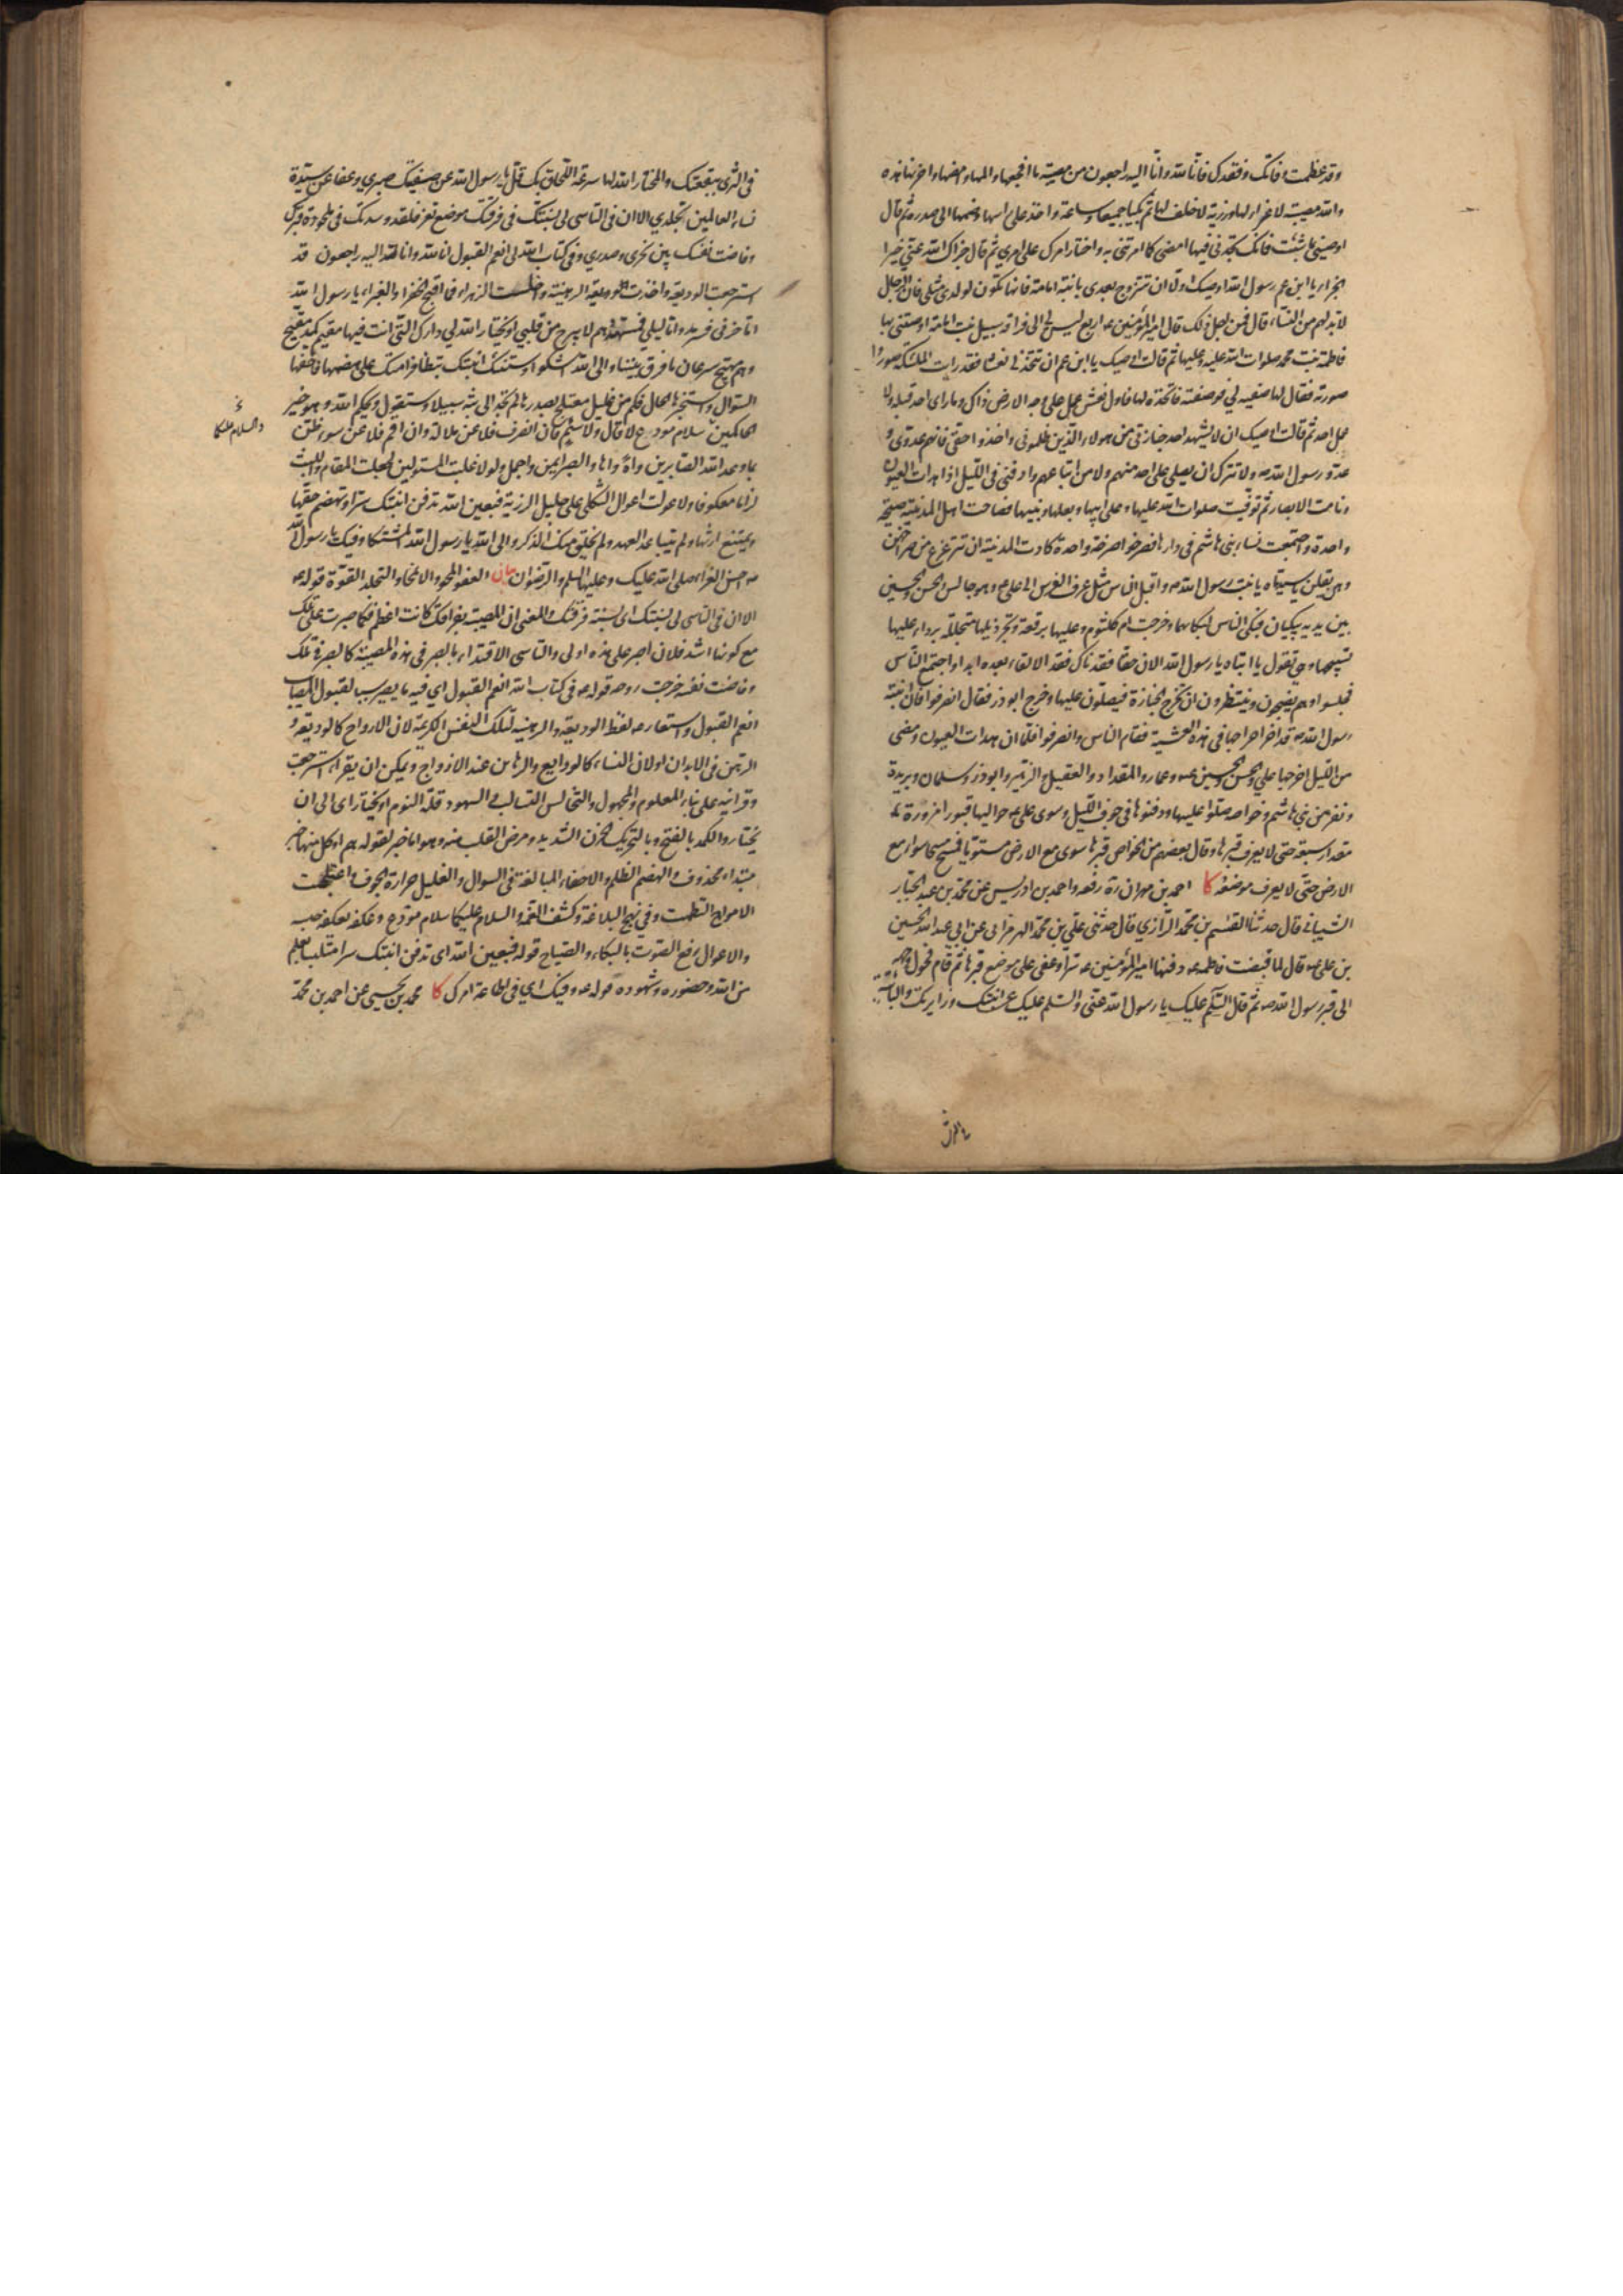 وقد عظمت وفاتك وفقدك فانا لله وانا اليه راجعون من مصيبة ما افجعها والمها وامضها واحزنها هذه
والله مصيبة لا عزاء لها ورزية لا خلف لها ثم بكيا جميعا ساعة واخذ على راسها وضمها الى صدره ثم قال
اوصيني بما شئت فانك تجديني فيها امضي كما امرتني به واختار امرك على امري ثم قال جزاك الله عني خير ا
لجزاء يا ابن عم رسول الله اوصيك اولا ان تتزوج بعدي بابنة امامة فانها تكون لولدي مثلي فان الرجال
لا بد لهم من النساء قال فمن اجل ذلك قال امير المؤمنين ع اربع ليس لي الى فراقه سبيل بنت امامة اوصتني بها
فاطمة بنت محمد صلوات الله عليه وعليها ثم قالت اوصيك يا ابن عم ان تتخذ لي نعشا فقد رايت الملئكة صوروا
صورته فقال لها صفيه لي فوصفته فاتخذه لها فاول نعش عمل على وجه الارض ذاك وما راى احد قبله ولا
عمل احد ثم قالت اوصيك ان لا يشهد احد جنازتي من هولاء الذين ظلموني واخذوا حقي فانهم عدوي و
عدو رسول الله ص ولا تترك ان يصلي علي احد منهم ولا من اتباعهم وادفني في الليل اذا هدات العيون
ونامت الابصار ثم توفيت صلوات الله عليها وعلى ابيها وبعلها وبنيها فصاحت اهل المدينة صيحة
واحدة واجتمعت نساء بني هاشم في دارها فصرخوا صرخة واحدة كادت المدينة ان تتزعزع من صراخهن
وهن يقلن يا سيدتاه يا بنت رسول الله ص واقبل الناس مثل عرف الفرس الى علي ع وهو جالس والحسن والحسين
بين يديه يبكيان فبكى الناس لبكائهما وخرجت ام كلثوم وعليها برقعة وتجر ذيلها متجللة برداء عليها
تسبجها وهي تقول يا ابتاه يا رسول الله الان حقا فقدناك فقدا لا لقاء بعده ابدا واجتمع الناس
فجلسوا وهم يضجون وينتظرون ان تخرج الجنازة فيصلون عليها وخرج ابو ذر فقال انصرفوا فان ابنة
رسول الله ص قد اخر اخراجها في هذه العشية فقام الناس وانصرفوا فلما ان هدات العيون ومضى
من الليل اخرجها علي والحسن والحسين ع وعمار والمقداد والعقيل والزبير وابو ذر وسلمان وبريدة
ونفر من بني هاشم وخواصه صلوا عليها ودفنوها في جوف الليل وسوى علي ع حواليها قبورا مزورة
مقدار سبعة حتى لا يعرف قبرها وقال بعضهم من الخواص قبرها سوي مع الارض مستويا فمسح مسحا سواء مع
الارض حتى لا يعرف موضعه كا احمد بن مهران ره رفعه واحمد بن ادريس عن محمد بن عبد الجبار
الشيباني قال حدثنا القسم بن محمد الرازي قال حدثني علي بن محمد الهرمزاني عن ابي عبد الله الحسين
بن علي ع قال لما قبضت فاطمة ع دفنها امير المؤمنين ع سرا وعفى على موضع قبرها ثم قام فحول وجهه
الى قبر رسول الله ص ثم قال السلم عليك يا رسول الله عني والسلم عليك عن ابنتك وزايرتك والبائتة
في الثرى ببقعتك والمختار الله لها سرعة اللحاق بك قل يا رسول الله عن صفيتك صبري وعفا عن سيدة
نساء العالمين تجلدي الا ان في التاسي لي بسنتك في فرقتك موضع تعز فلقد وسدتك في ملحودة قبرك
وفاضت نفسك بين نحري وصدري وفي كتاب الله لي انعم القبول انا لله وانا اليه راجعون قد
استرجعت الوديعة واخذت الرهينة واخلست الزهراء فما اقبح الخضراء والغبراء يا رسول الله
اما حزني فسرمد واما ليلي فمسهد وهم لا يبرح من قلبي او يختار الله لي دارك التي انت فيها مقيم كمد مقيح
وهم مهيج سرعان ما فرق بيننا والى الله اشكو وستنبئك ابنتك بتظافر امتك على هضمها فاحفها
السؤال واستخبرها الحال فكم من غليل معتلج بصدرها لم تجد الى بثه سبيلا وستقول ويحكم الله وهو خير
الحاكمين سلام مودع لا قال ولا سئم فان انصرف فلا عن ملالة وان اقم فلا عن سوء ظن
والسلام عليكما
بما وعد الله الصابرين واه واها والصبر ايمن واجمل ولولا غلبة المستولين لجعلت المقام واللبث
لزاما معكوفا ولاعولت اعوال الثكلى على جليل الرزية فبعين الله تدفن ابنتك سرا وتهضم حقها
ويمنع ارثها ولم يتباعد العهد ولم يخلق منك الذكر والى الله يا رسول الله المشتكى وفيك يا رسول الله
ص احسن العزاء صلى الله عليك وعليها السلم والرضوان بيان العفو المحو والانمحاء والتجلد القوة قوله ع
الا ان في التاسي لي بسنتك اي بسنة فرقتك والمعنى ان المصيبة بفراقك كانت اعظم فكما صبرت على تلك
مع كونها اشد فلان اصبر على هذه اولى والتاسي الاقتداء بالصبر في هذه المصيبة كالصبر في تلك
وفاضت نفسه خرجت روحه قوله ع في كتاب الله انعم القبول اي فيه ما يصير سببا لقبول المصاب
انعم القبول واستعار ع لفظ الوديعة والرهينة لتلك النفس الكريمة لان الارواح كالوديعة و
الرهن في الابدان او لان النساء كالودايع والرهاين عند الازواج ويمكن ان يقرء استرجعت
وقرانيه على بناء المعلوم والمجهول والتخالس التسالب والسهود قلة النوم او يختار اي الى ان
يختار والكمد بالفتح وبالتحريك الحزن الشديد ومرض القلب منه وهو اما خبر لقوله هم او كل منهما خبر
مبتداء محذوف والهضم الظلم والاحفاء المبالغة في السوال والغليل حرارة الجوف واعتلجت
الامواج التطمت وفي نهج البلاغة وكشف الغمة والسلام عليكما سلام مودع وعكفه يعكفه حبسه
والاعوال رفع الصوت بالبكاء والصياح قوله فبعين الله اي تدفن ابنتك سرا متلبسا بعلم
من الله وحضوره وشهوده قوله ع وفيك اي في اطاعة امرك كا محمد بن يحيى عن احمد بن محمد